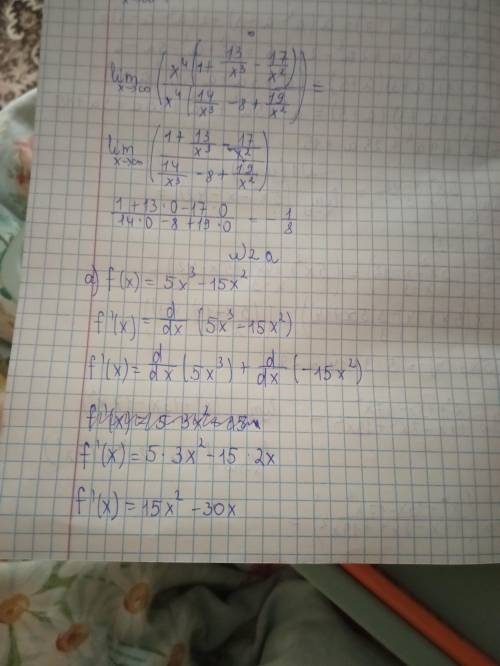 lim x→∞ (x⁴(1 + 13/x³ - 17/x²) / x⁴(14/x³ - 8 + 19/x²)) =
lim x→∞ (1 + 13/x³ - 17/x² / 14/x³ - 8 + 19/x²)
1 + 13·0 - 17 0 / 14·0 - 8 + 19·0 = - 1/8
№2 a
a) f(x) = 5x³ - 15x²
f'(x) = d/dx (5x³ - 15x²)
f'(x) = d/dx (5x³) + d/dx (-15x²)
f'(x) = 5·3x² - 15·2x
f'(x) = 15x² - 30x